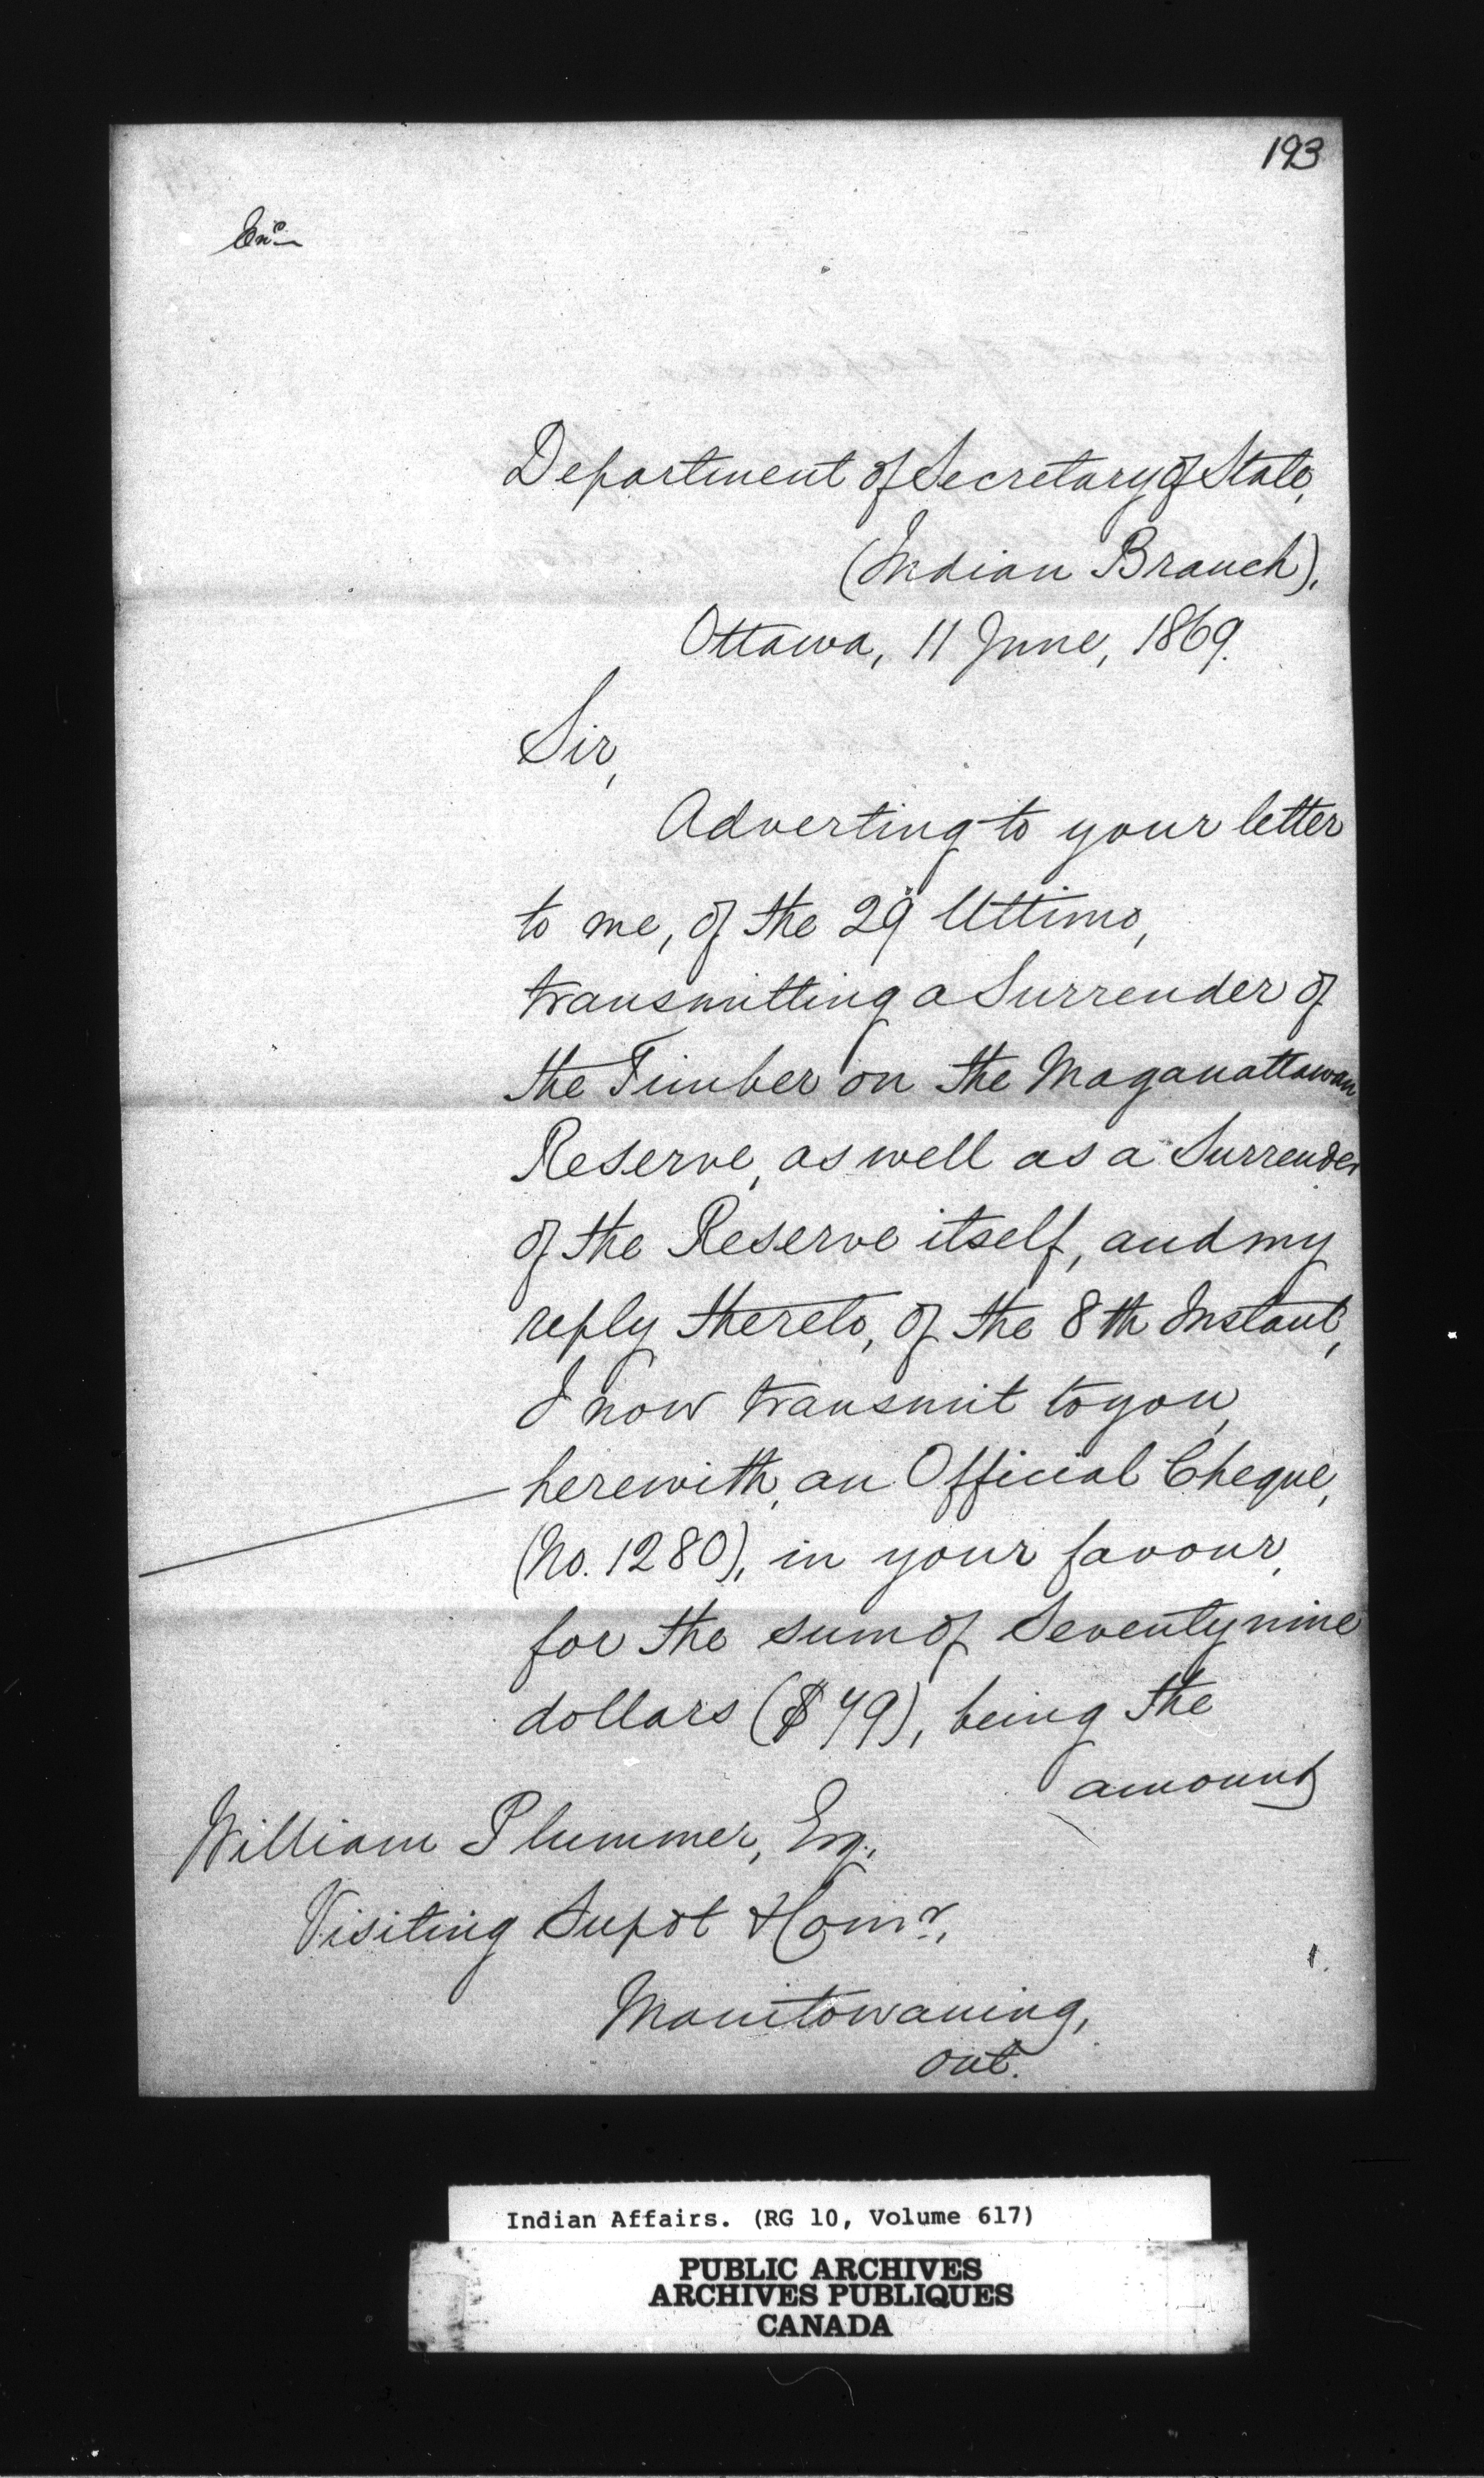 193
Encˢ
Department of Secretary of State,
(Indian Branch),
Ottawa, 11 June, 1869.
Sir,
Adverting to your letter
to me, of the 29" Ultimo,
transmitting a Surrender of
the Timber on the Maganattawan
Reserve, as well as a Surrender
of the Reserve itself, and my
reply thereto, of the 8th Instant,
I now transmit to you,
herewith, an Official Cheque,
(No. 1280), in your favour,
for the sum of Seventy nine
dollars ($79), being the
amount
William Plummer, Esq.,
Visiting Supdt & Comr.,
Manitowaning,
Ont.
Indian Affairs. (RG 10, Volume 617)
PUBLIC ARCHIVES
ARCHIVES PUBLIQUES
CANADA